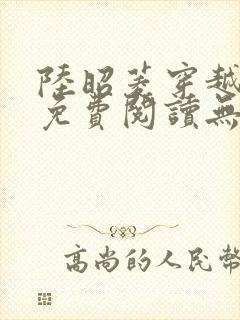 陸昭菱穿越
免費閱讀無
高尚的人民幣